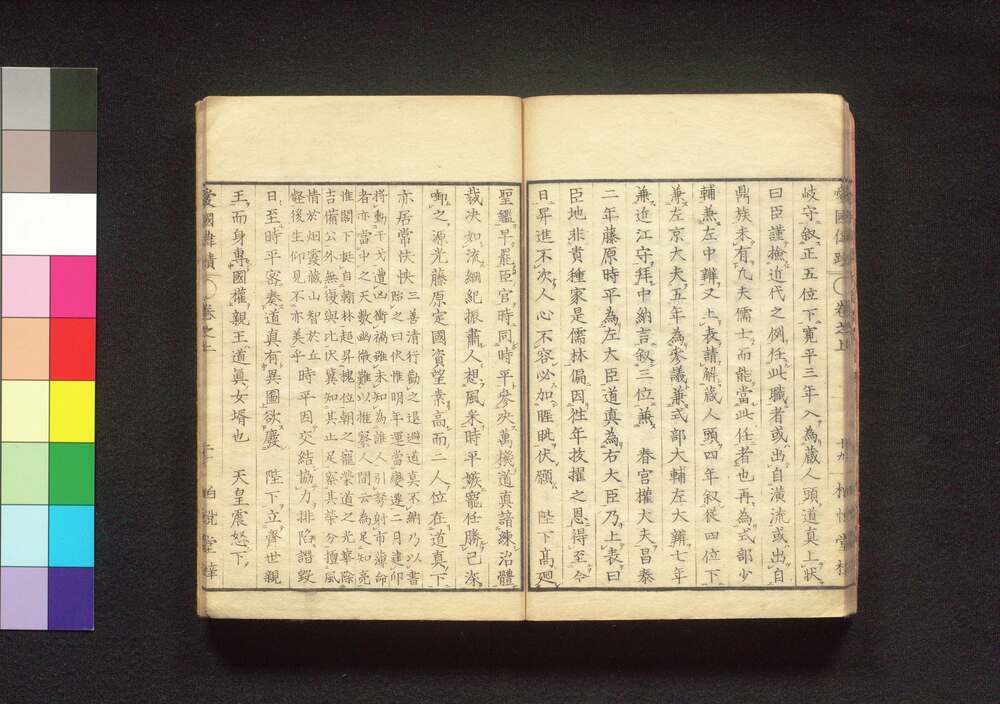 岐守叙正五位下寛平三年入為蔵人頭道真上状
曰臣謹撿近代之例任此職者或出自潢流或出自
鼎族未有凡夫儒士而能當此任者也再為式部少
輔兼左中辨又上表請解蔵人頭四年叙従四位下
兼左京大夫五年為参議兼式部大輔左大辨七年
兼近江守拜中納言叙三位兼 春宮權大夫昌泰
二年藤原時平為左大臣道真為右大臣乃上表曰
臣地非貴種家是儒林偏因徃年抜擢之恩得至今
日昇進不次人心不容必加睚眦伏願 陛下髙廻
聖鑑早罷臣官時同時平参决萬機道真諳練治體
裁决如流綱紀振肅人想風采時平嫉寵任勝己深
啣之源光藤原定國資望素髙而二人位在道真下
亦居常怏怏
三善清行勸之退避道真不納乃以書
貽之曰伏惟明年運當變遷二月建卯
将動干戈遭凶衝禍雖未知為誰人引弩射市薄命
者亦當中之天數幽微難以推察人間云為足知亮
惟閣下挺自翰林超昇槐位朝之寵榮道之光華除
吉備公外無復與比伏冀知其止足察其榮分擅風
情於烟霞蔵山智於丘
壑後生仰見不亦美乎
時平因交結協力排陷譖毀
日至時平密奏道真有異圖欲廢 陛下立齊世親
王而身專國權親王道眞女婿也 天皇震怒下
愛國偉績 巻之上